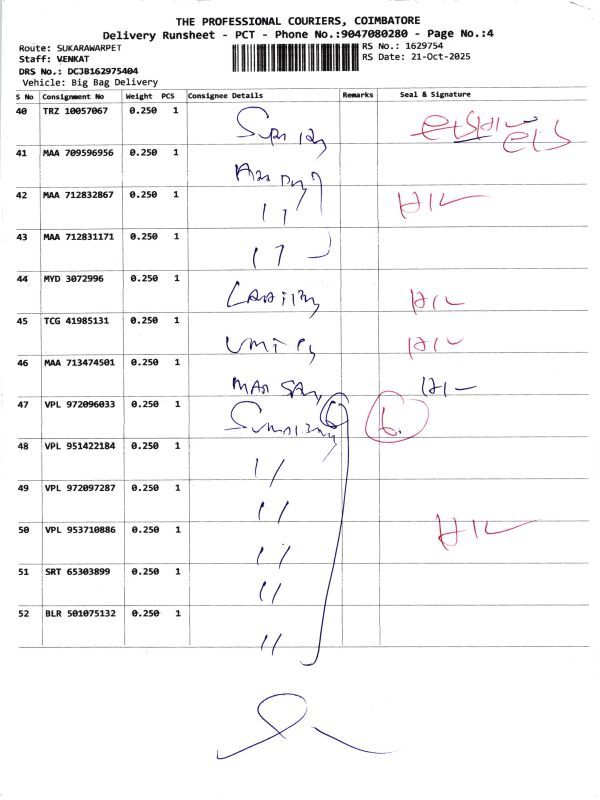 THE PROFESSIONAL COURIERS, COIMBATORE
Delivery Runsheet - PCT - Phone No.:9047080280 - Page No.:4
Route: SUKARAWARPET
Staff: VENKAT
DRS No.: DCJB162975404
Vehicle: Big Bag Delivery
RS No.: 1629754
RS Date: 21-Oct-2025
S No Consignment No Weight PCS Consignee Details Remarks Seal & Signature
40 TRZ 10057067 0.250 1
41 MAA 709596956 0.250 1
42 MAA 712832867 0.250 1 11
43 MAA 712831171 0.250 1
44 MYD 3072996 0.250 1
45 TCG 41985131 0.250 1
46 MAA 713474501 0.250 1
47 VPL 972096033 0.250 1 6 6.
48 VPL 951422184 0.250 1 11
49 VPL 972097287 0.250 1 11
50 VPL 953710886 0.250 1 11
51 SRT 65303899 0.250 1 11
52 BLR 501075132 0.250 1 11